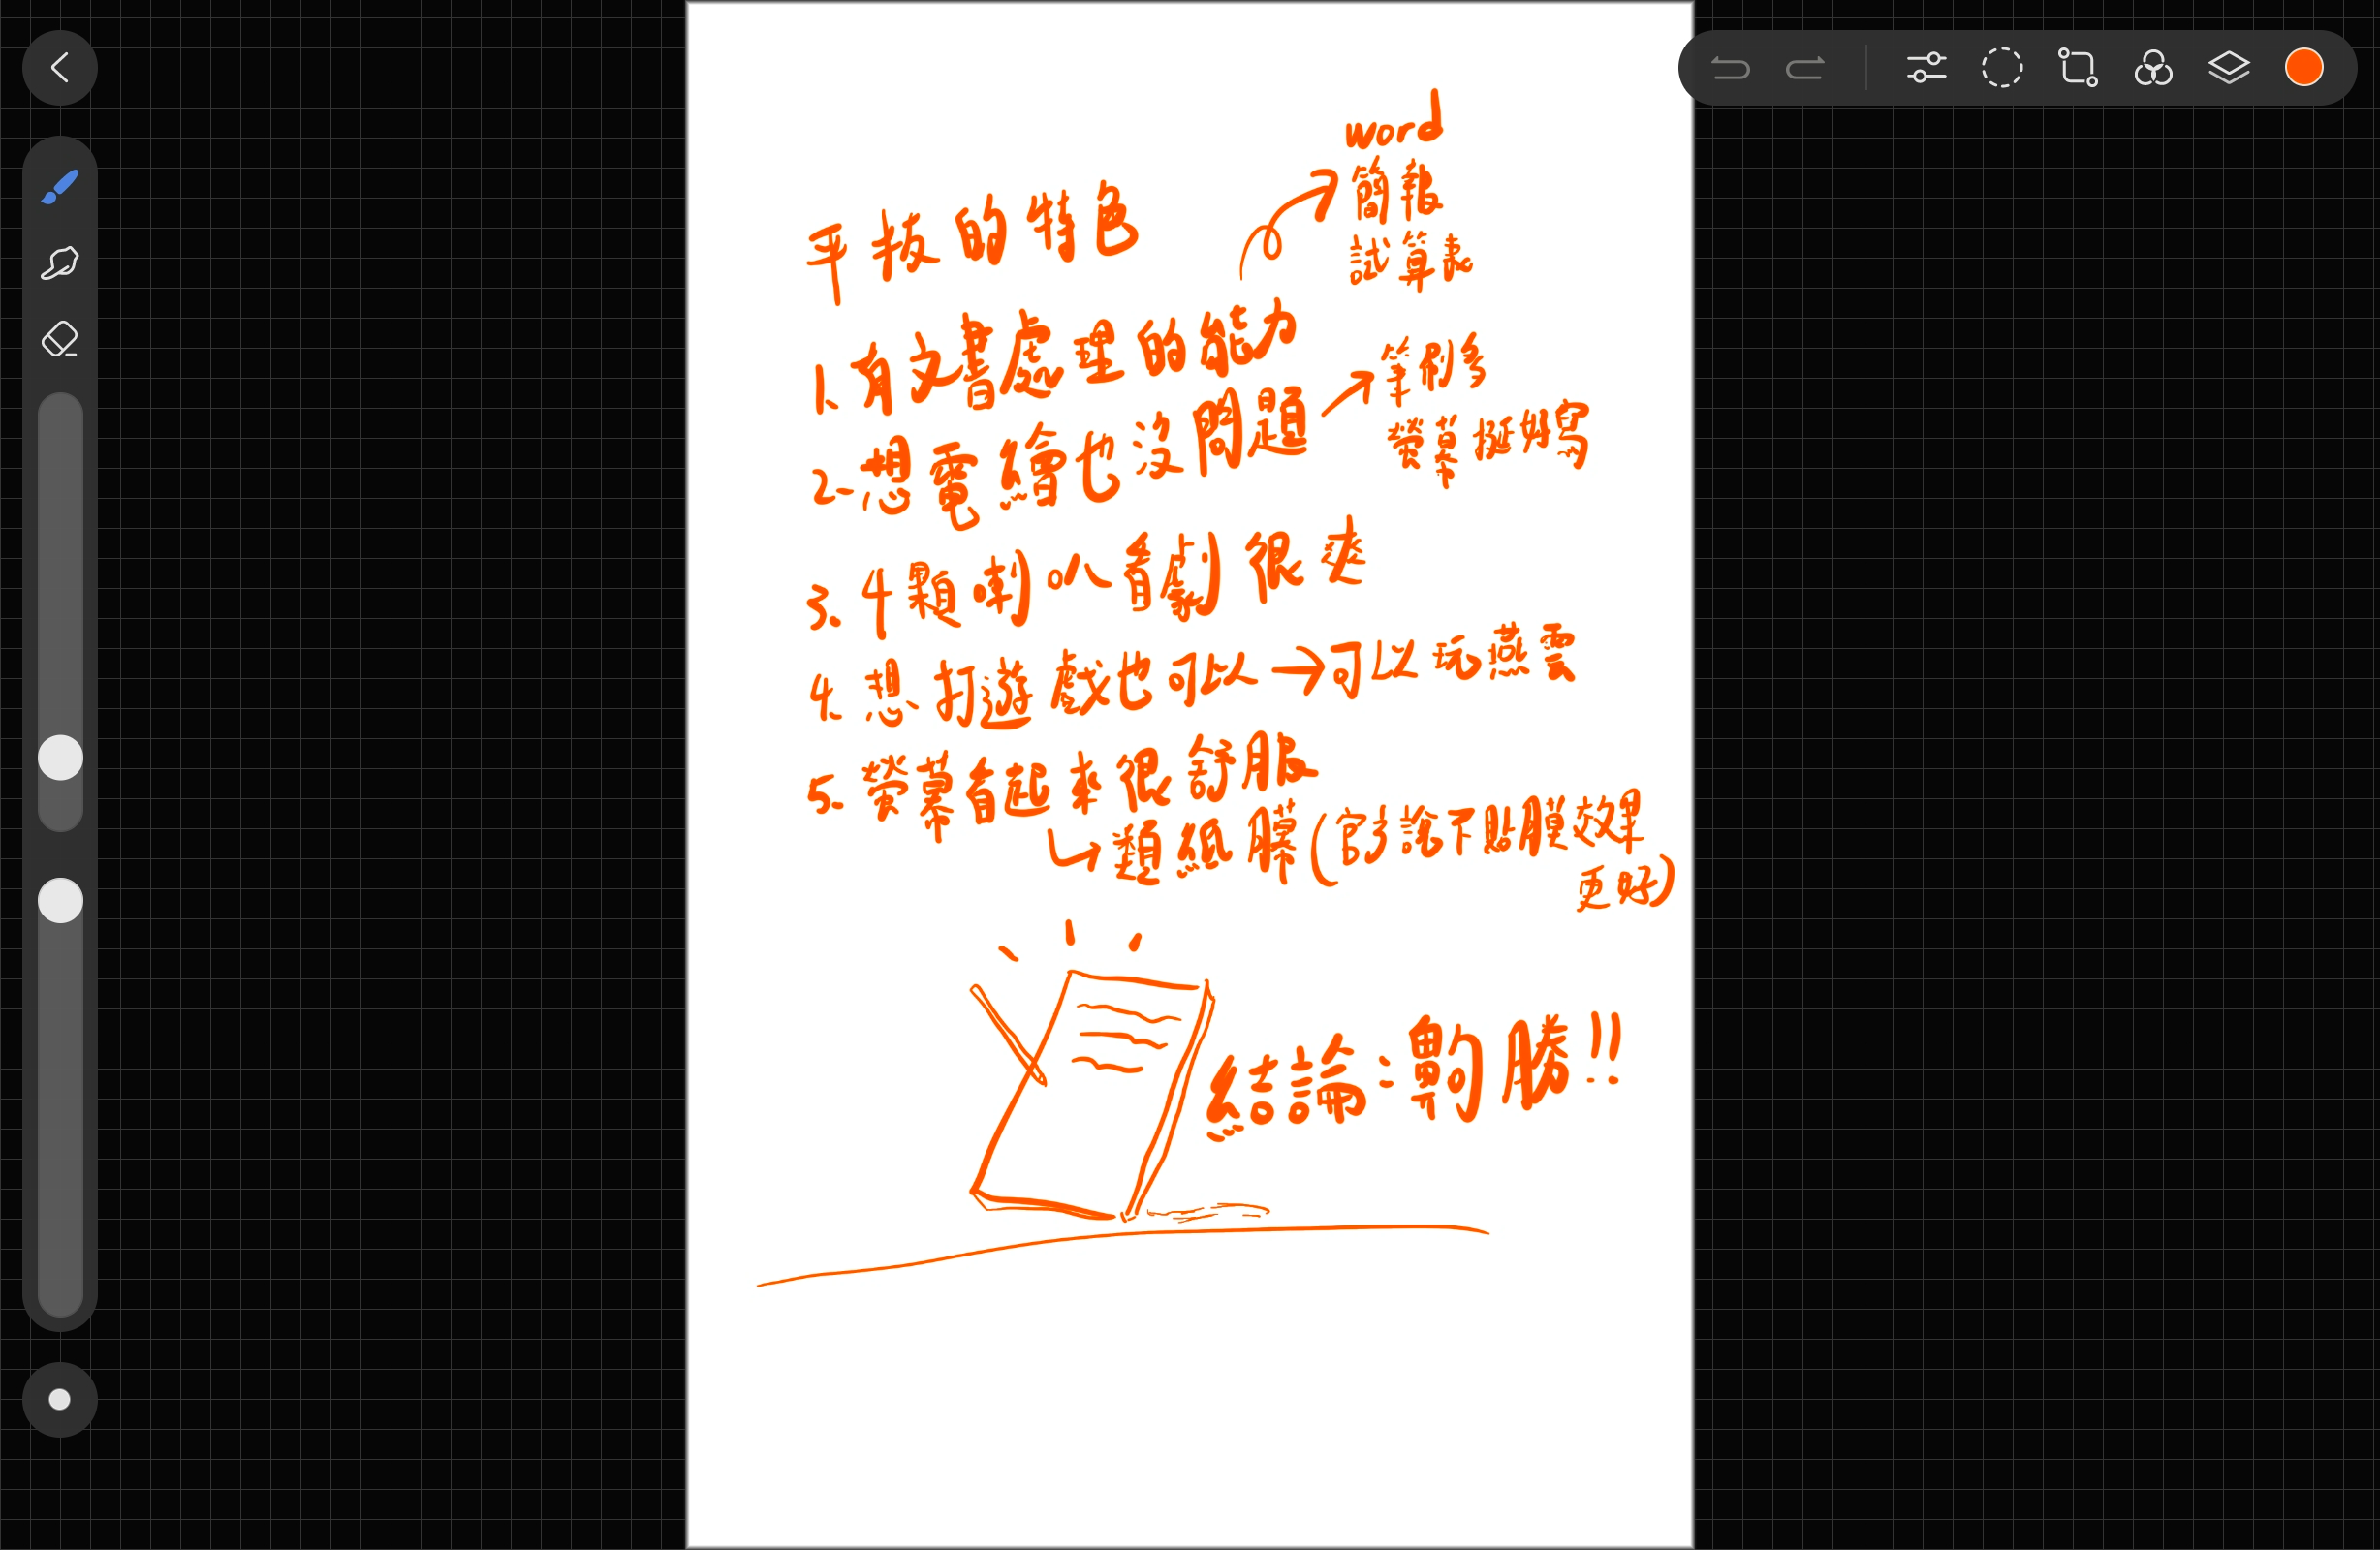 平板的特色
word
簡報
試算表
1、有文書處理的能力
2.想電繪也沒問題
筆刷多
螢幕挺好寫
3、4顆喇叭看劇很爽
4.想打遊戲也可以→可以玩燕雲
5.螢幕看起來很舒服
類紙膜(官方說不貼膜效果
更好)
結論:單勝!!